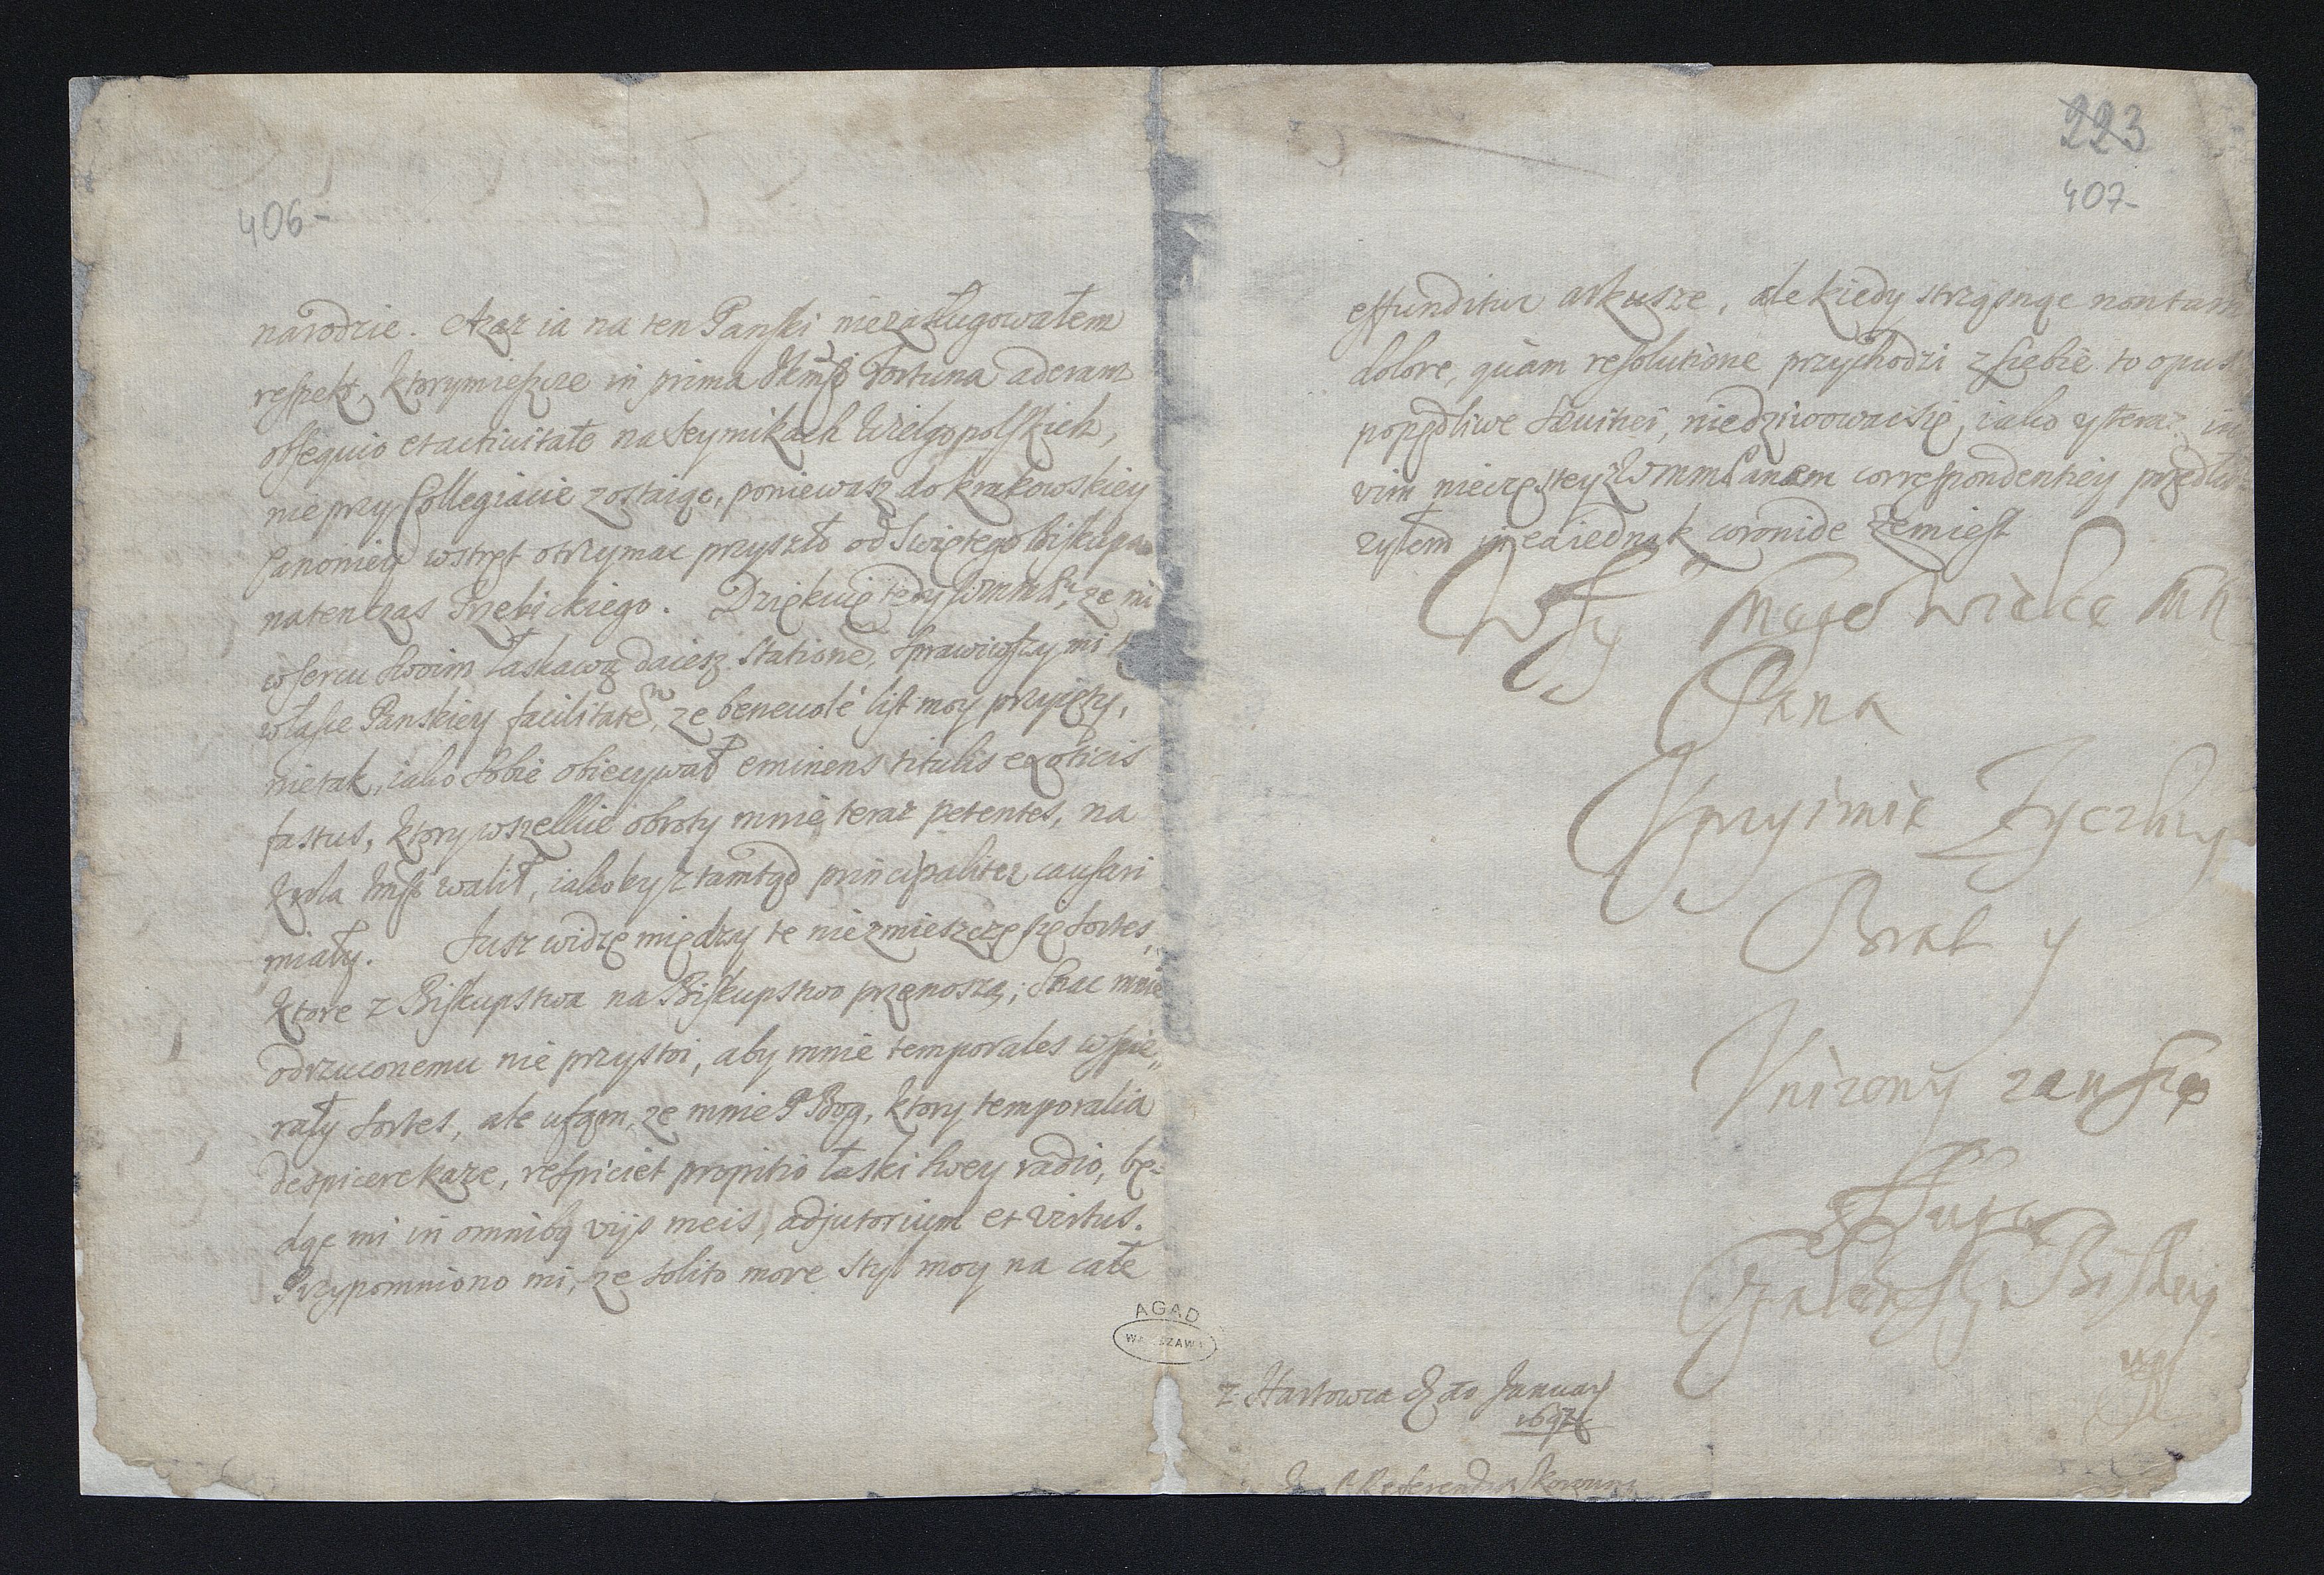 406-
narodzie. Azaz ia na ten Panski niezasługowałem
respekt, ktorymieszcze in prima JKmsci fortuna aderam
obsequio et actiuitate na Seymikach Wielgopolskich,
nie przy Collegiacie zostaiąc, poniewasz do krakowskiey
Canoniey wstręt otrzymac przyszło od Swiętego Biskupa
natenczas Trzebickiego. Dziękuię tedy że mi
w sercu swoim łaskawą daiesz statione, sprawiwszy mi
w łasce Panskiey facilitatem, ze beneuole list moy przyięty,
nietak, iako sobie obiecywał eminens titulis exoticis
fastus, ktory wszelkie obroty mnie teraz petentes, na
krola Jmsci walił, iakoby ztamtąd principaliter causari
miały. Jusz widzę między te niezmieszczę się sortes,
ktore z Biskupstwa na Biskupstwo przenoszą; snac mnie
odrzuconemu nie przystoi, aby mnie temporales wspie„
rały sortes, ale ufąm, ze mnie P Bog, ktory temporalia
despicere kaze, respiciet propitio łaski swey radio, bę„
dąc mi in omnibq vijs meis, adjutorium et virtus.
Przypomniono mi, ze solito more styl moy na całe
AGAD
WARSZAWA
223
407-
effunditur arkusze, ale kiedy strząsnąc non tam
dolore, quàm resolutione przychodzi z siebie to opus
popędliwe niedziwowacsię, iako y teraz in
vim nieczęstey z WmmPanem correspondentiey przedłu„
zyłem in ea iednak coronide zemiest
Wszy Mego wielce M
Pana
Vprzyimie Zyczliwy
Brat y
Vnizony zawsze
Sługa
Biskup
z Januarij
1697
Referendarz Koronny